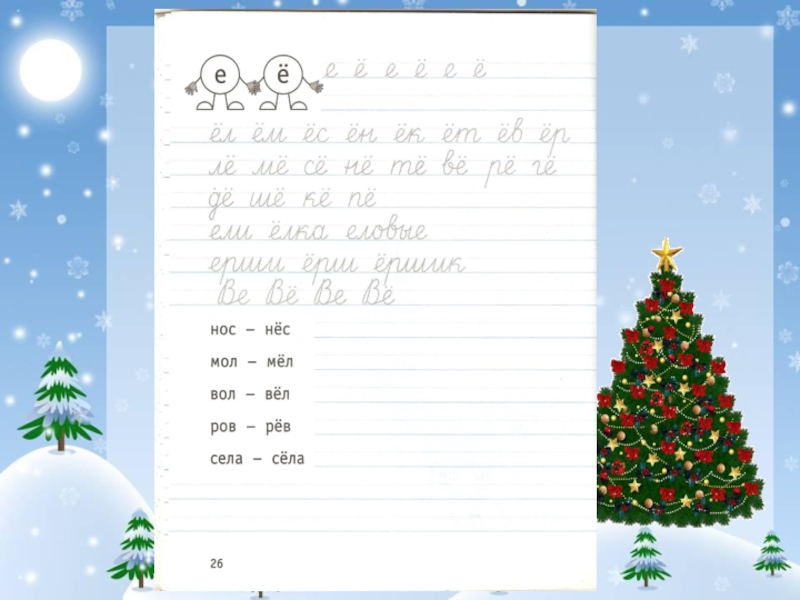 е ё е ё е ё е ё
ёл ём ёс ён ёк ёт ёв ёр
лё мё сё нё тё вё рё гё
дё шё кё пё
ели ёлка еловые
ерши ёрш ёршик
Ве Вё Ве Вё
нос – нёс
мол – мёл
вол – вёл
ров – рёв
села – сёла
26